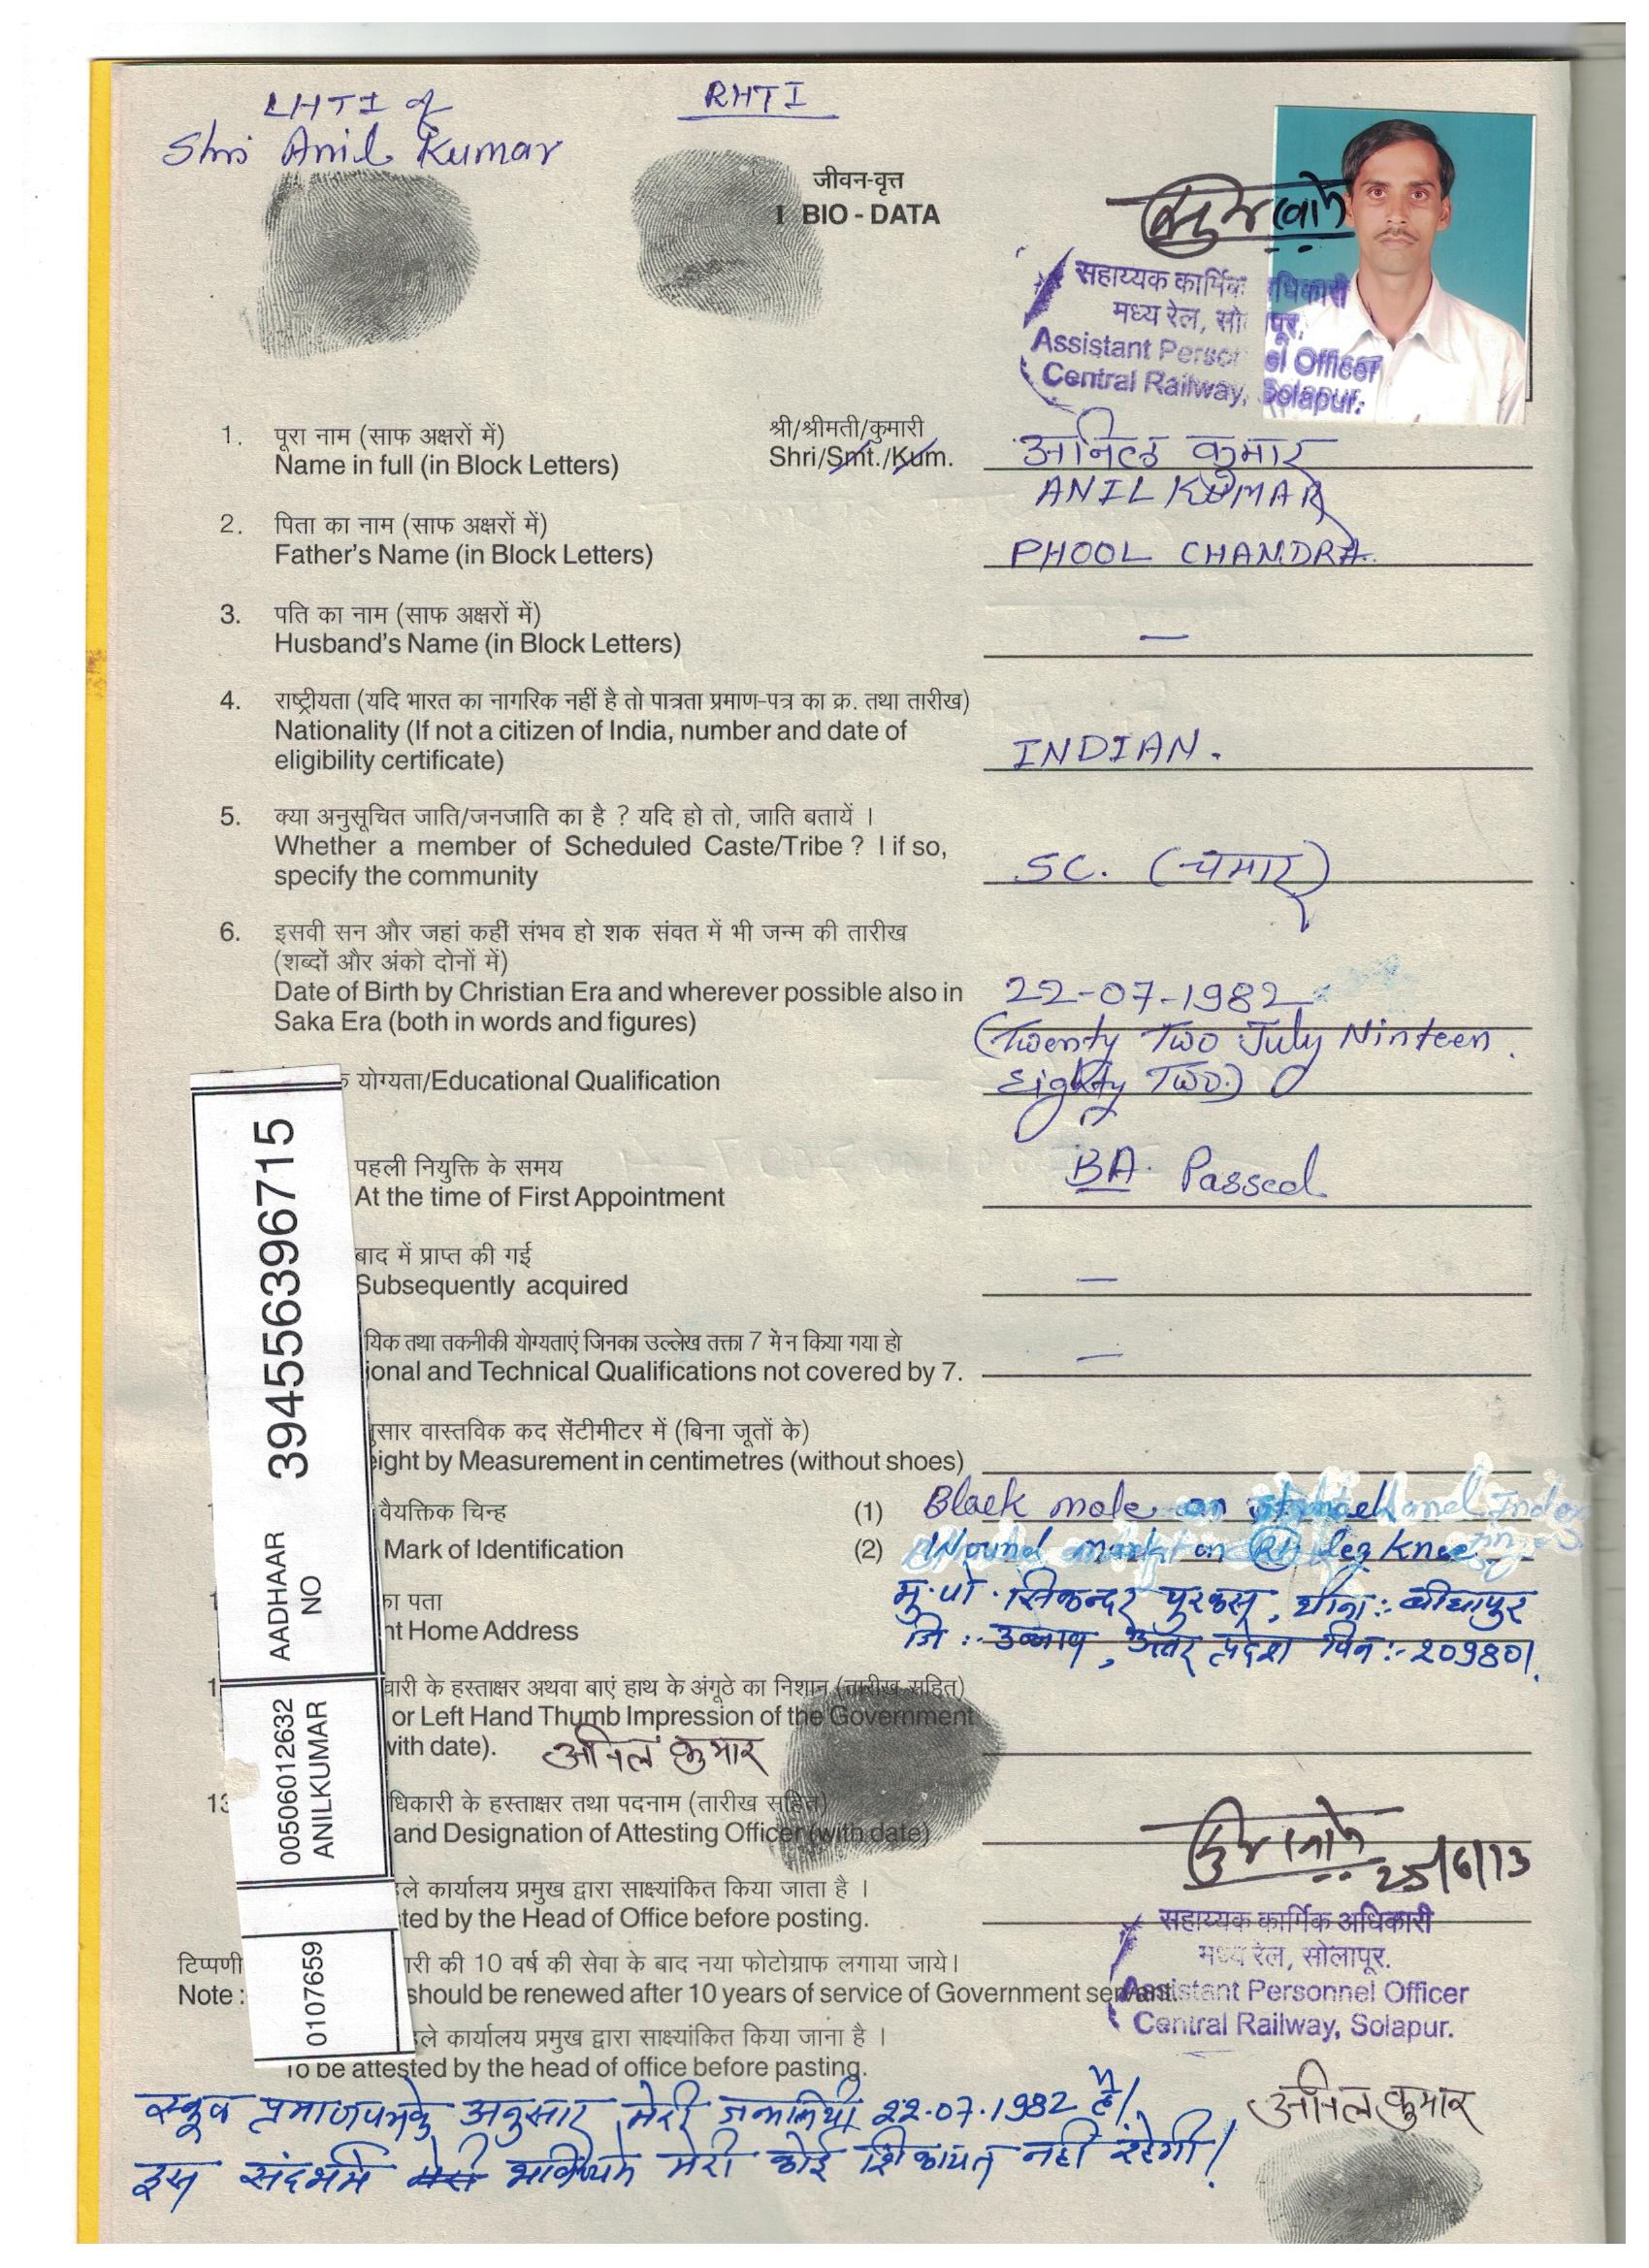 LHTI of
Shri Anil Kumar
RHTI
जीवन-वृत्त
I BIO - DATA
सहाय्यक कार्मिक अधिकारी
मध्य रेल, सोलापूर.
Assistant Personnel Officer
Central Railway, Solapur.
1. पूरा नाम (साफ अक्षरों में) श्री/श्रीमती/कुमारी
Name in full (in Block Letters) Shri/Smt./Kum.
अनिल कुमार
ANIL KUMAR
2. पिता का नाम (साफ अक्षरों में)
Father's Name (in Block Letters) PHOOL CHANDRA.
3. पति का नाम (साफ अक्षरों में)
Husband's Name (in Block Letters) —
4. राष्ट्रीयता (यदि भारत का नागरिक नहीं है तो पात्रता प्रमाण-पत्र का क्र. तथा तारीख)
Nationality (If not a citizen of India, number and date of
eligibility certificate) INDIAN.
5. क्या अनुसूचित जाति/जनजाति का है ? यदि हो तो, जाति बतायें ।
Whether a member of Scheduled Caste/Tribe ? I if so,
specify the community SC. (चमार)
6. इसवी सन और जहां कहीं संभव हो शक संवत में भी जन्म की तारीख
(शब्दों और अंको दोनों में)
Date of Birth by Christian Era and wherever possible also in 22-07-1982
Saka Era (both in words and figures) (Twenty Two July Ninteen
Eighty Two.)
योग्यता/Educational Qualification
पहली नियुक्ति के समय
At the time of First Appointment BA. Passed
बाद में प्राप्त की गई
Subsequently acquired —
यिक तथा तकनीकी योग्यताएं जिनका उल्लेख तक्ता 7 में न किया गया हो
ional and Technical Qualifications not covered by 7. —
नुसार वास्तविक कद सेंटीमीटर में (बिना जूतों के)
eight by Measurement in centimetres (without shoes)
वैयक्तिक चिन्ह (1) Black mole on
Mark of Identification (2) Wound mark on Rt leg knee
का पता मु.पो. सिकन्दर पुरकसू, थाना:- बीघापुर
nt Home Address जि:- उन्नाव, उत्तर प्रदेश पिन:- 209801.
चारी के हस्ताक्षर अथवा बाएं हाथ के अंगूठे का निशान (तारीख सहित)
or Left Hand Thumb Impression of the Government
with date). अनिल कुमार
13 धिकारी के हस्ताक्षर तथा पदनाम (तारीख सहित)
and Designation of Attesting Officer (with date)
25/6/13
हले कार्यालय प्रमुख द्वारा साक्ष्यांकित किया जाता है ।
ted by the Head of Office before posting.
सहाय्यक कार्मिक अधिकारी
मध्य रेल, सोलापूर.
Assistant Personnel Officer
Central Railway, Solapur.
टिप्पणी ारी की 10 वर्ष की सेवा के बाद नया फोटोग्राफ लगाया जाये।
Note : should be renewed after 10 years of service of Government servant.
हले कार्यालय प्रमुख द्वारा साक्ष्यांकित किया जाना है ।
To be attested by the head of office before pasting.
स्कूल प्रमाणपत्रके अनुसार मेरी जन्मतिथी 22.07.1982 है।
इस संदर्भमे भविष्यमे मेरी कोई शिकायत नही रहेगी।
अनिल कुमार
AADHAAR NO 394556396715
00506012632
ANILKUMAR
0107659